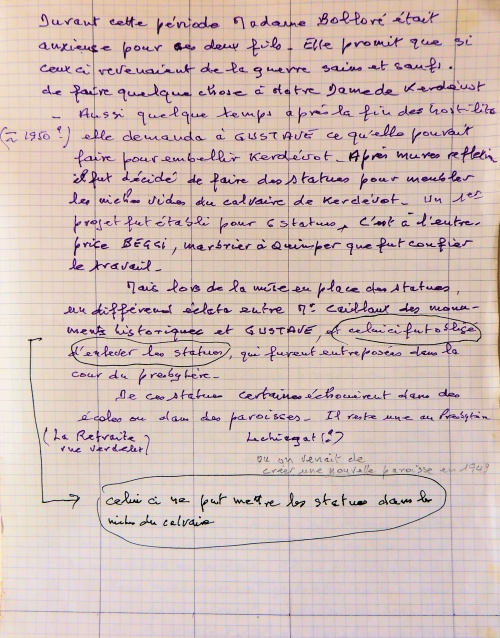 Durant cette période Madame Bolloré était
anxieuse pour ses deux fils. Elle promit que si
ceux ci revenaient de la guerre sains et saufs.
de faire quelque chose à Notre Dame de Kerdévot
- Aussi quelque temps après la fin des hostilités
(± 1950 ?) elle demanda à GUSTAVE ce qu'elle pouvait
faire pour embellir Kerdévot - Après mures reflexion
il fut décidé de faire des statues pour meubler
les niches vides du calvaire de Kerdévot - Un 1er
projet fut établi pour 6 statues, C'est à l'entre-
prise BEGGI, marbrier à Quimper que fut confier
le travail -
Mais lors de la mise en place des statues,
un différend éclata entre Mr Caillaux des monu-
ments historiques et GUSTAVE, et celui ci fut obligé
d'enlever les statues, qui furent entreposées dans la
cour du presbytère -
De ces statues certaines échouirent dans des
écoles ou dans des paroisses - Il reste une au Presbytère
(La Retraite rue Verdelet) Lechiagat (?)
ou on venait de
créer une nouvelle paroisse en 1949
celui ci ne put mettre les statues dans les
niches du calvaire